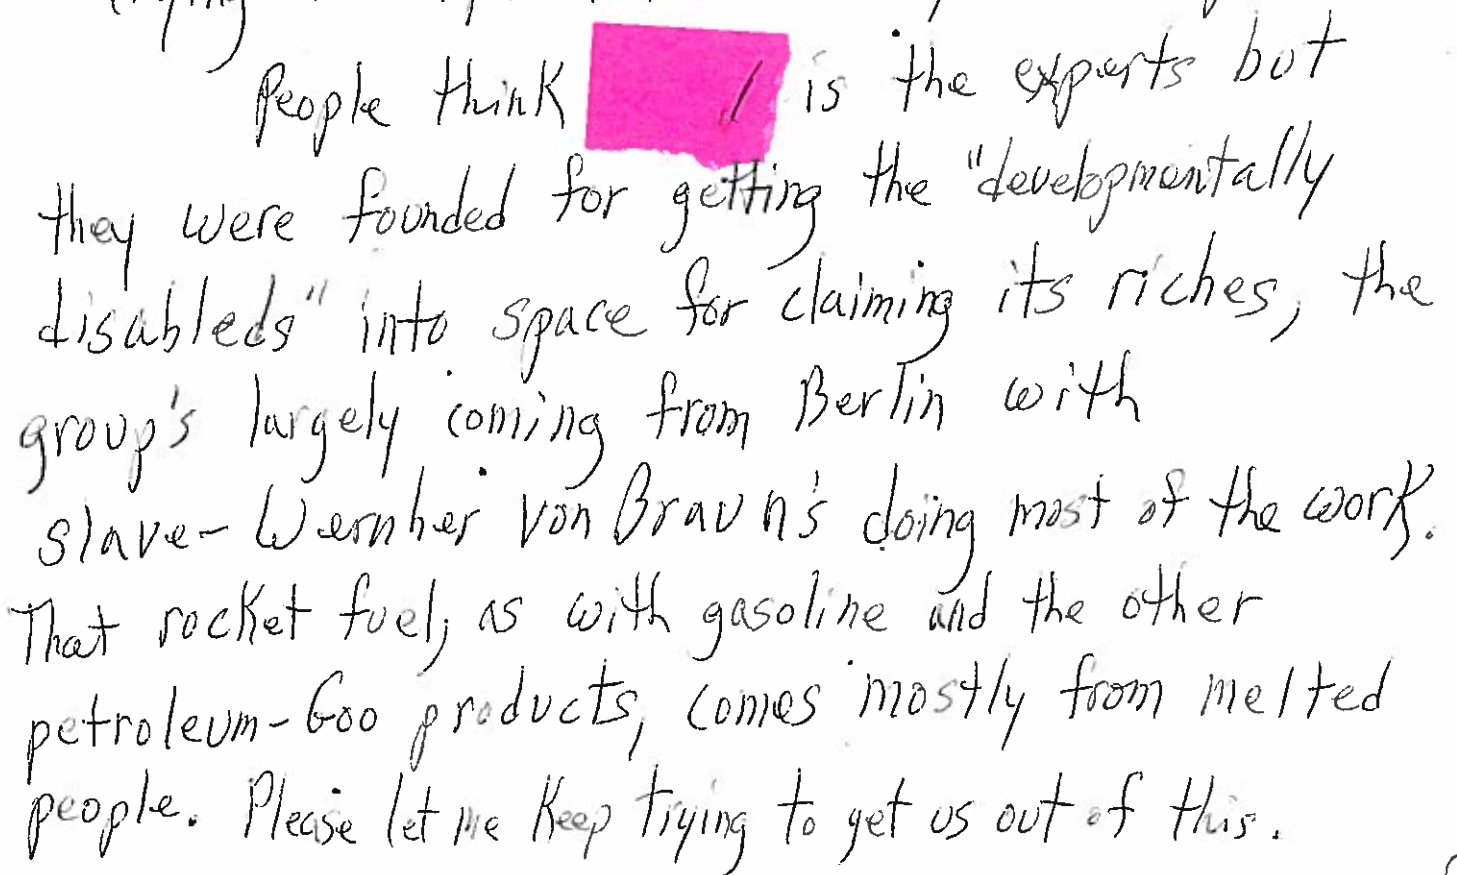 People think is the experts but
they were founded for getting the "developmentally
disableds" into space for claiming its riches, the
group's largely coming from Berlin with
slave-Wernher von Braun's doing most of the work.
That rocket fuel, as with gasoline and the other
petroleum-Goo products, comes mostly from melted
people. Please let me keep trying to get us out of this.